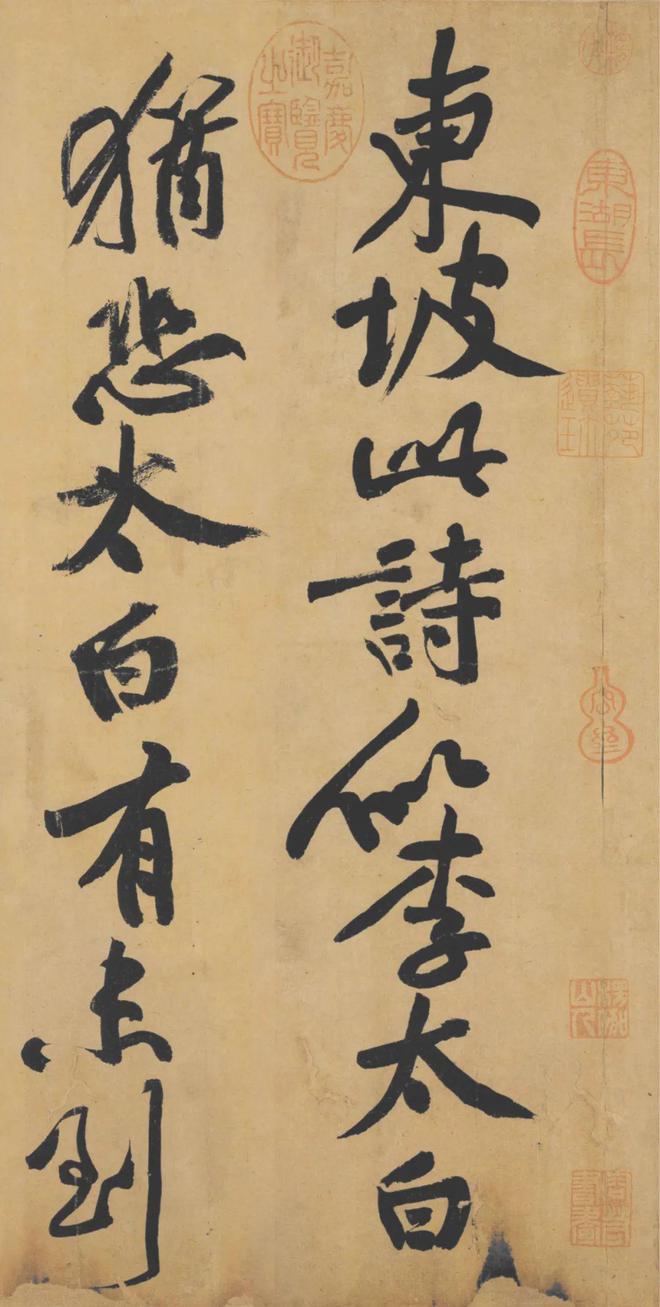 東湖長
藝苑遺珍
東坡此詩似李太白
嘉慶
御覽
之寶
猶恐太白有未到